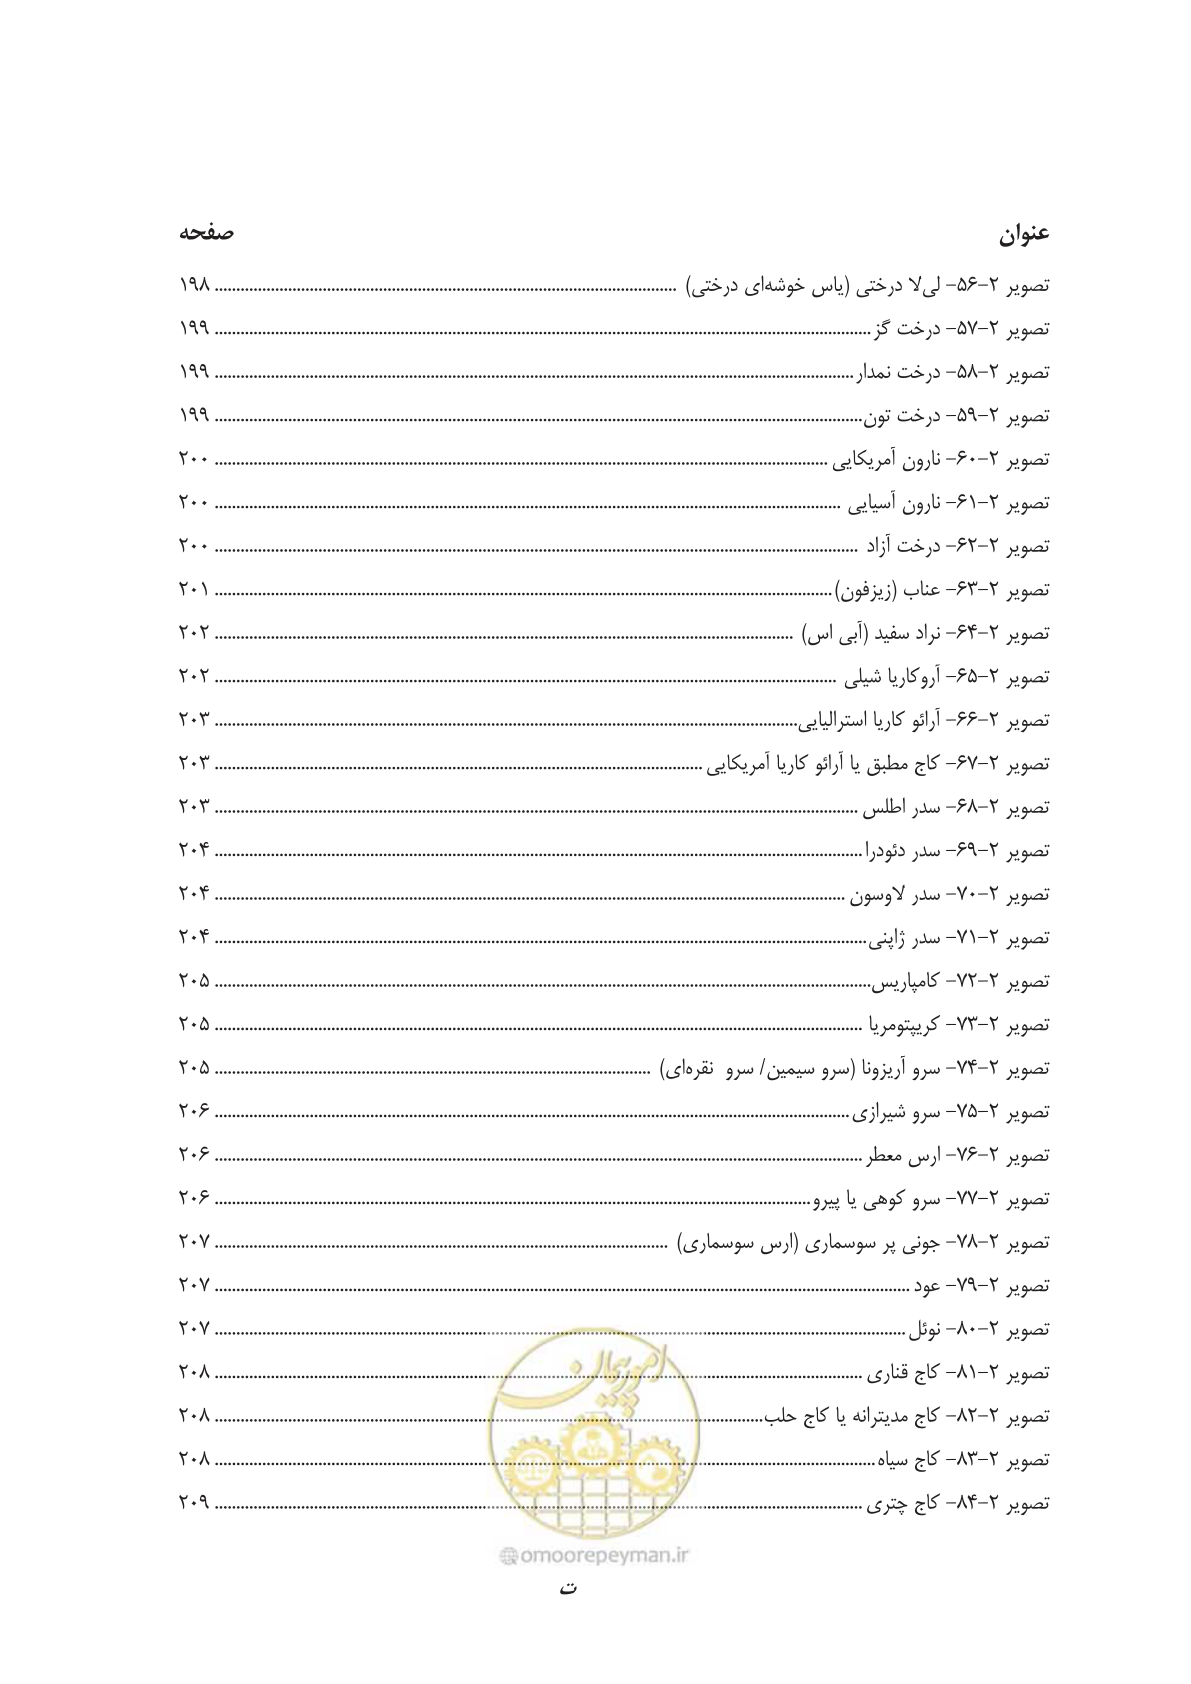 عنوان صفحه
تصویر ۲-۵۶- لی‌لا درختی (یاس خوشه‌ای درختی) ۱۹۸
تصویر ۲-۵۷- درخت گز ۱۹۹
تصویر ۲-۵۸- درخت نمدار ۱۹۹
تصویر ۲-۵۹- درخت تون ۱۹۹
تصویر ۲-۶۰- نارون آمریکایی ۲۰۰
تصویر ۲-۶۱- نارون آسیایی ۲۰۰
تصویر ۲-۶۲- درخت آزاد ۲۰۰
تصویر ۲-۶۳- عناب (زیزفون) ۲۰۱
تصویر ۲-۶۴- نراد سفید (آبی اس) ۲۰۲
تصویر ۲-۶۵- آروکاریا شیلی ۲۰۲
تصویر ۲-۶۶- آرائو کاریا استرالیایی ۲۰۳
تصویر ۲-۶۷- کاج مطبق یا آرائو کاریا آمریکایی ۲۰۳
تصویر ۲-۶۸- سدر اطلس ۲۰۳
تصویر ۲-۶۹- سدر دئودرا ۲۰۴
تصویر ۲-۷۰- سدر لاوسون ۲۰۴
تصویر ۲-۷۱- سدر ژاپنی ۲۰۴
تصویر ۲-۷۲- کامپاریس ۲۰۵
تصویر ۲-۷۳- کریپتومریا ۲۰۵
تصویر ۲-۷۴- سرو آریزونا (سرو سیمین/ سرو نقره‌ای) ۲۰۵
تصویر ۲-۷۵- سرو شیرازی ۲۰۶
تصویر ۲-۷۶- ارس معطر ۲۰۶
تصویر ۲-۷۷- سرو کوهی یا پیرو ۲۰۶
تصویر ۲-۷۸- جونی پر سوسماری (ارس سوسماری) ۲۰۷
تصویر ۲-۷۹- عود ۲۰۷
تصویر ۲-۸۰- نوئل ۲۰۷
تصویر ۲-۸۱- کاج قناری ۲۰۸
تصویر ۲-۸۲- کاج مدیترانه یا کاج حلب ۲۰۸
تصویر ۲-۸۳- کاج سیاه ۲۰۸
تصویر ۲-۸۴- کاج چتری ۲۰۹
امور پیمان
@omoorepeyman.ir
ت